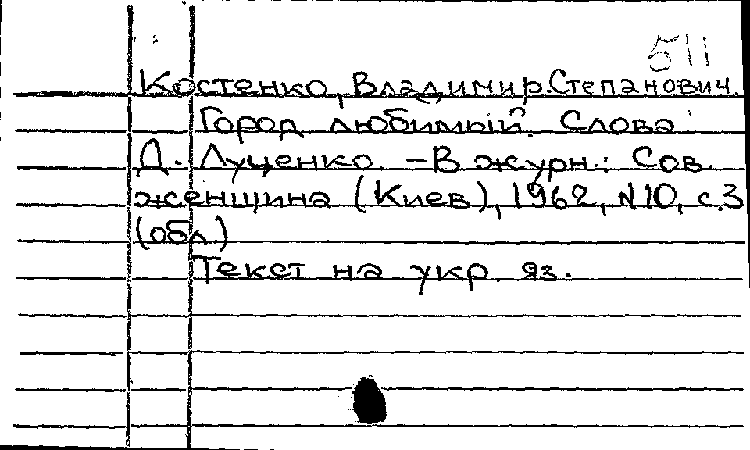 511
Костенко, Владимир Степанович.
Город любимый. Слова
Д. Луценко. – В журн.: Сов.
женщина (Киев), 1962, №10, с.3
(обл.)
Текст на укр. яз.